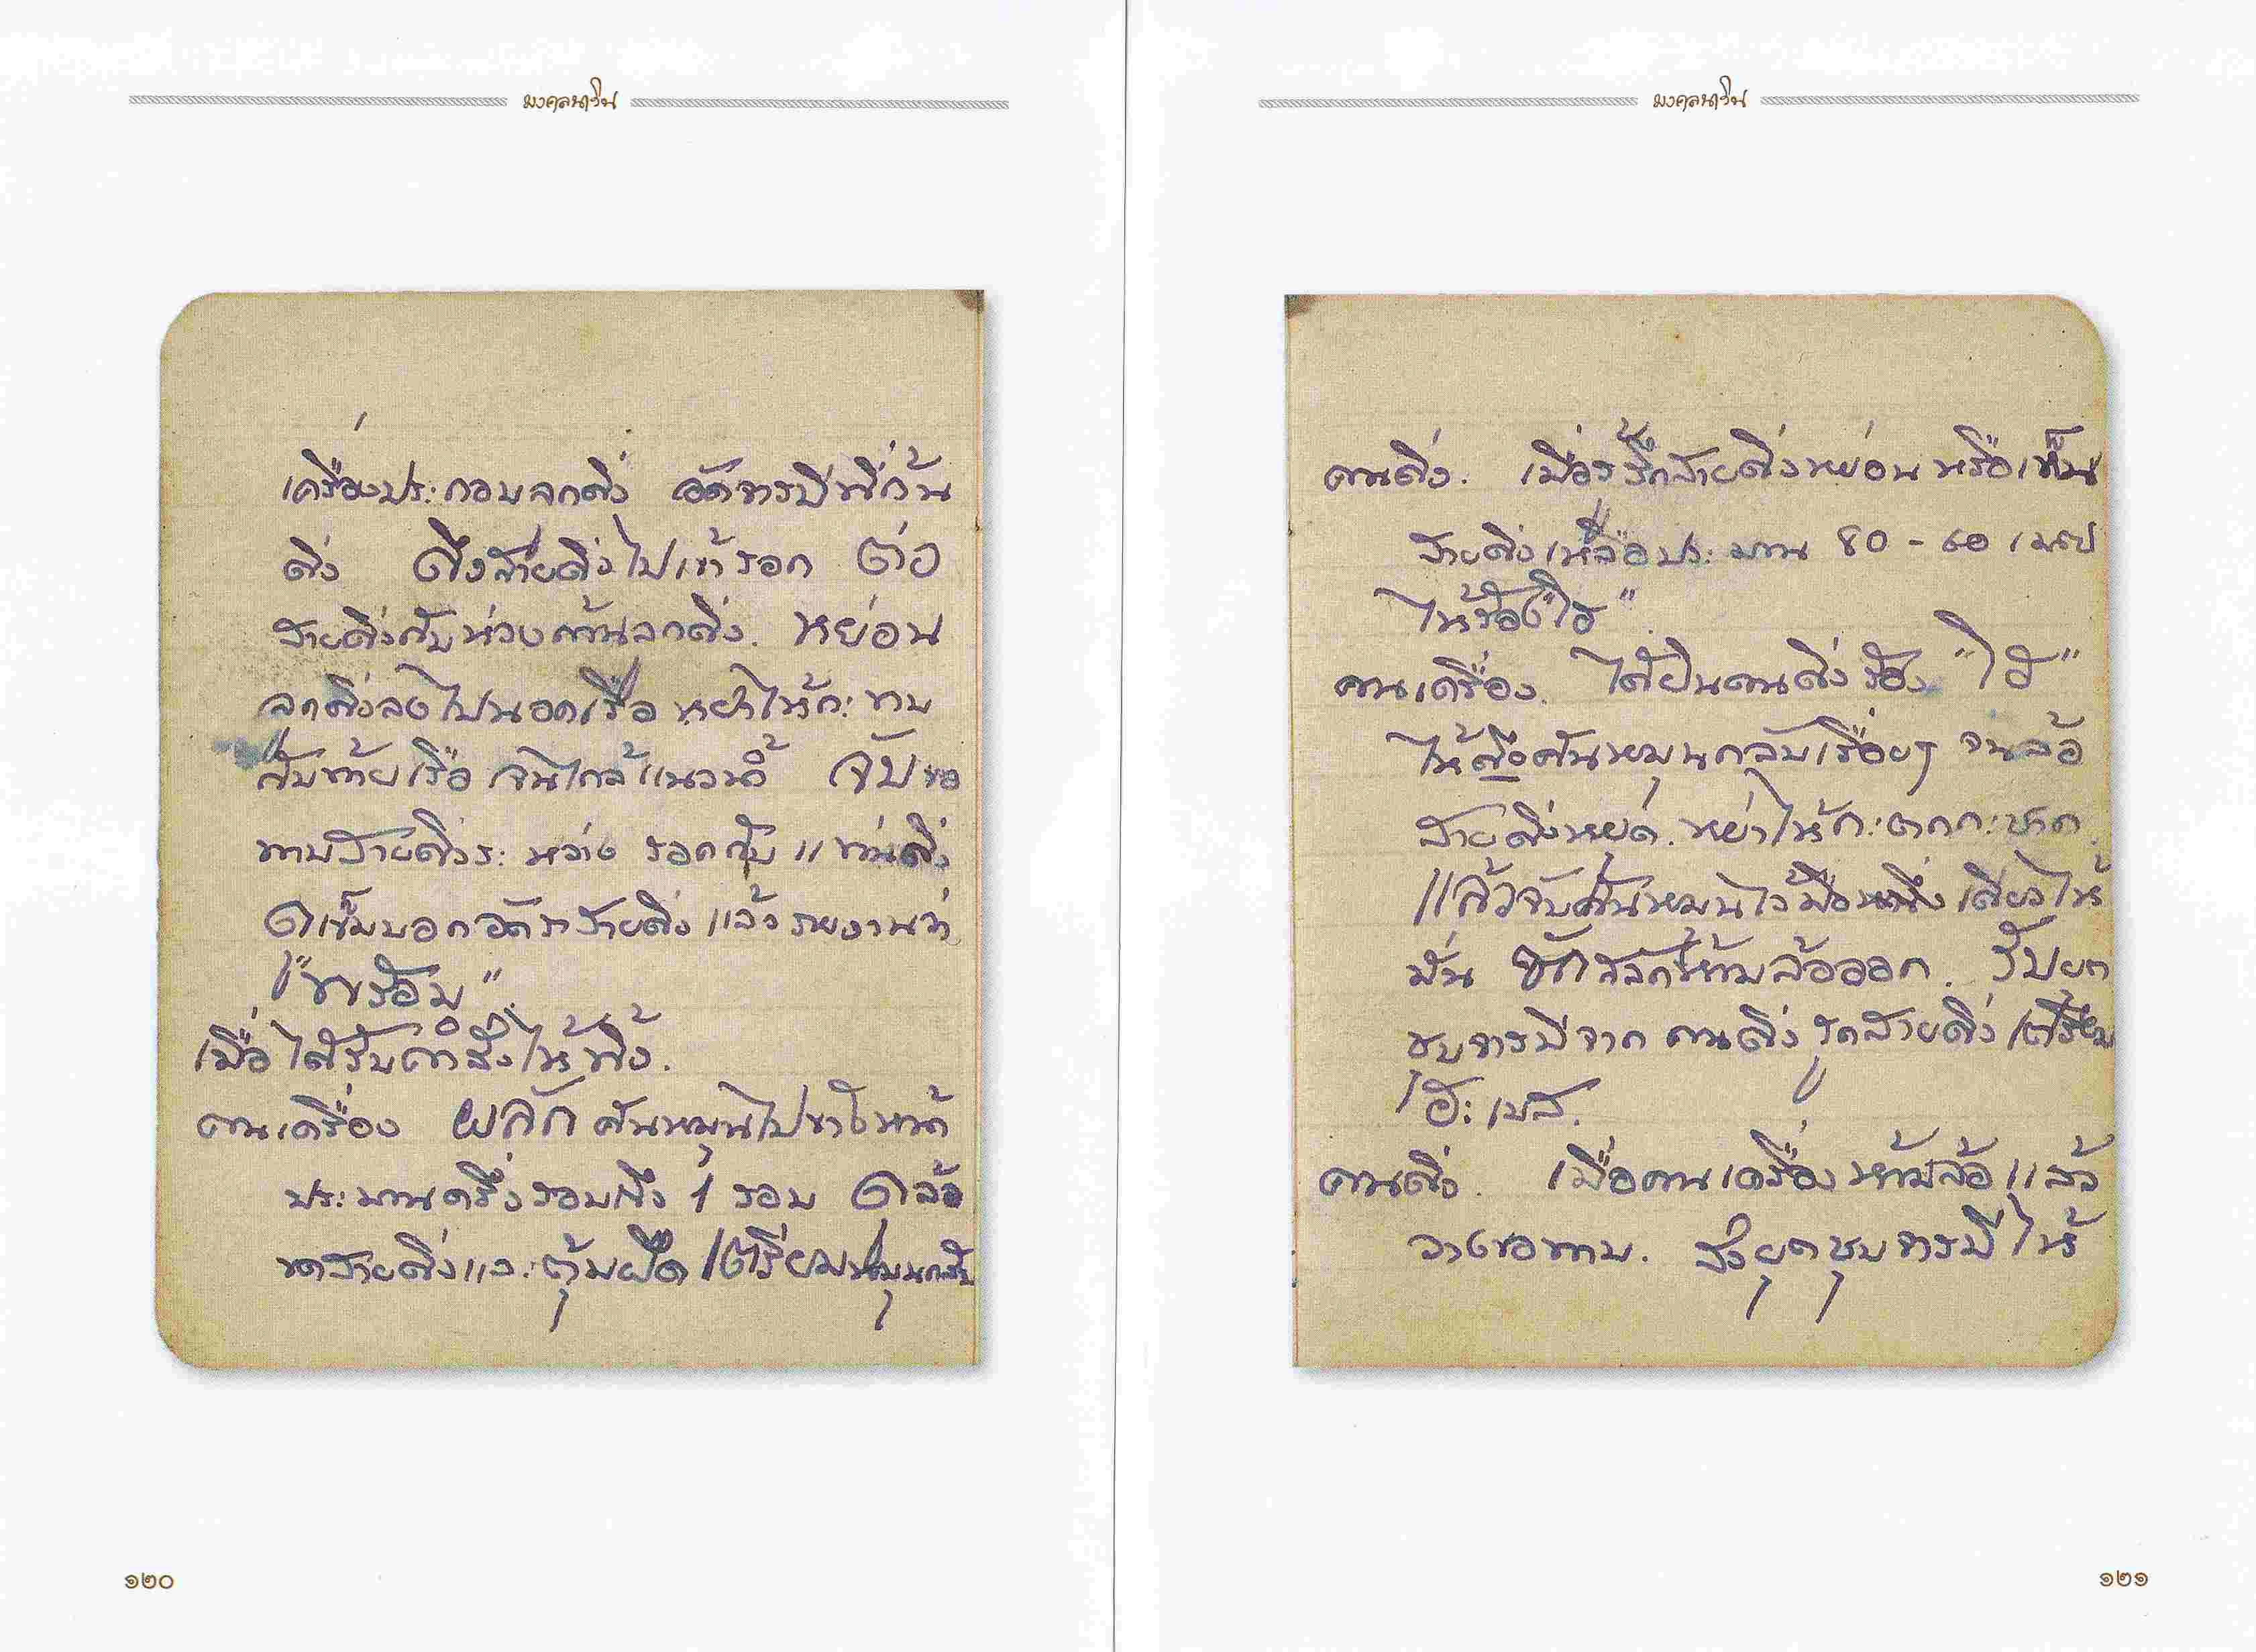 มงคลนาวิน
เครื่องประกอบลูกดิ่ง อัดจารบีที่ก้น
ดิ่ง ดึงสายดิ่งไปเข้ารอก ต่อ
สายดิ่งกับห่วงก้านลูกดิ่ง. หย่อน
ลูกดิ่งลงไปนอกเรือ หย่าให้กะทบ
กับท้ายเรือ จนใกล้แนวน้ำ จับขอ
ทาบสายดิ่งระหว่าง รอกกับแท่นดิ่ง
ดูเข็มบอกอัตราสายดิ่งแล้วรายงานว่า
"พร้อม".
เมื่อได้รับคำสั่งให้ทิ้ง.
คนเครื่อง ผลักคันหมุนไปข้างหน้า
ประมานครึ่งรอบถึง 1 รอบ ดูล้อ
ขดสายดิ่งและตุ้มฝืด เตรียมหมุนกลับ
๑๒๐
มงคลนาวิน
คนดิ่ง. เมื่อรู้สึกสายดิ่งหย่อนหรือเห็น
สายดิ่งเหลือประมาน 80 - 60 เมตร์
ให้ร้อง "ไฮ้".
คนเครื่อง. ได้ยินคนดิ่งร้อง "ไฮ้"
ให้ถือคันหมุนกลับเรื่อยๆ จนล้อ
สายดิ่งหยุด. หย่าให้กะตุกกะชาก.
แล้วจับคันหมุนไว้มือหนึ่งเสียวให้
มั่น ชักสลักห้ามล้อออก. รับยก
ชุบจารบีจาก คนดิ่ง รูดสายดิ่ง เตรียม
คนดิ่ง. เมื่อคนเครื่องห้ามล้อแล้ว
วางขอทาบ. ส่ง ชุบจารบีให้
๑๒๑